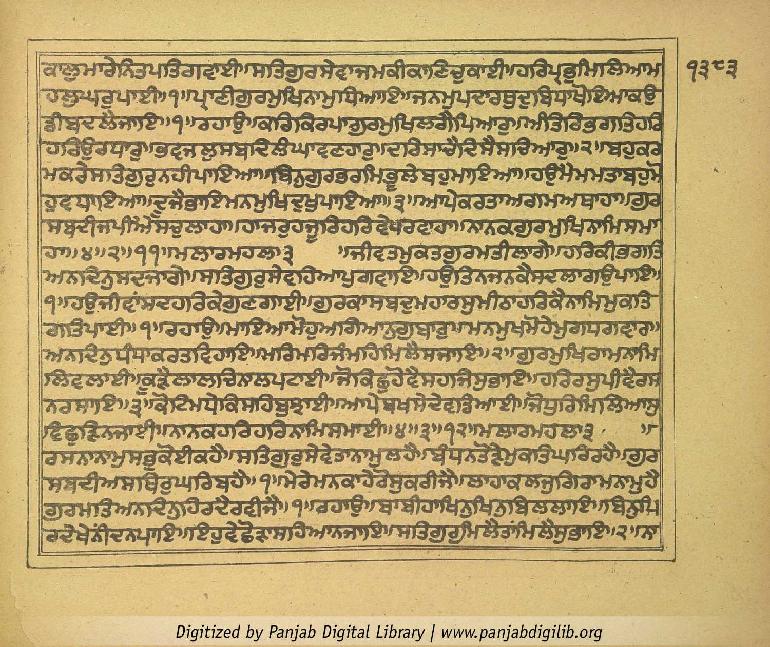 ੧੩੮੩
ਕਾਲੁ ਮਾਰੇ ਨਿਤ ਪਤਿ ਗਵਾਈ॥ਸਤਿਗੁਰ ਸੇਵਾ ਜਮ ਕੀ ਕਾਣਿ ਚੁਕਾਈ॥ਹਰਿ ਪ੍ਰਭੁ ਮਿਲਿਆ ਮ
ਹਲੁ ਘਰੁ ਪਾਈ॥੧॥ਪ੍ਰਾਣੀ ਗੁਰਮੁਖਿ ਨਾਮੁ ਧਿਆਇ॥ਜਨਮੁ ਪਦਾਰਥੁ ਦੁਬਿਧਾ ਖੋਇਆ ਕਉ
ਡੀ ਬਦਲੈ ਜਾਇ॥੧॥ਰਹਾਉ॥ਕਰਿ ਕਿਰਪਾ ਗੁਰਮੁਖਿ ਲਗੈ ਪਿਆਰੁ॥ਅੰਤਰਿ ਭਗਤਿ ਹਰਿ
ਹਰਿ ਉਰ ਧਾਰੁ॥ਭਵਜਲੁ ਸਬਦਿ ਲੰਘਾਵਣਹਾਰੁ॥ਦਰਿ ਸਾਚੈ ਦਿਸੈ ਸਚਿਆਰੁ॥੨॥ਬਹੁ ਕਰ
ਮ ਕਰੈ ਸਤਿਗੁਰੁ ਨਹੀ ਪਾਇਆ॥ਬਿਨੁ ਗੁਰ ਭਰਮਿ ਭੂਲੇ ਬਹੁ ਮਾਇਆ॥ਹਉਮੈ ਮਮਤਾ ਬਹੁ ਮੋ
ਹੁ ਵਧਾਇਆ॥ਦੂਜੈ ਭਾਇ ਮਨਮੁਖਿ ਦੁਖੁ ਪਾਇਆ॥੩॥ਆਪੇ ਕਰਤਾ ਅਗਮ ਅਥਾਹਾ॥ਗੁਰ
ਸਬਦੀ ਜਪੀਐ ਸਚੁ ਲਾਹਾ॥ਹਾਜਰੁ ਹਜੂਰਿ ਹਰਿ ਵੇਪਰਵਾਹਾ॥ਨਾਨਕ ਗੁਰਮੁਖਿ ਨਾਮਿ ਸਮਾ
ਹਾ॥੪॥੨॥੧੧॥ਮਲਾਰ ਮਹਲਾ ੩ ॥ਜੀਵਤ ਮੁਕਤ ਗੁਰਮਤੀ ਲਾਗੇ॥ਹਰਿ ਕੀ ਭਗਤਿ
ਅਨਦਿਨੁ ਸਦ ਜਾਗੇ॥ਸਤਿਗੁਰੁ ਸੇਵਹਿ ਆਪੁ ਗਵਾਇ॥ਹਉ ਤਿਨ ਜਨ ਕੇ ਸਦ ਲਾਗਉ ਪਾਇ॥
੧॥ਹਉ ਜੀਵਾਂ ਸਦਾ ਹਰਿ ਕੇ ਗੁਣ ਗਾਈ॥ਗੁਰ ਕਾ ਸਬਦੁ ਮਹਾ ਰਸੁ ਮੀਠਾ ਹਰਿ ਕੈ ਨਾਮਿ ਮੁਕਤਿ
ਗਤਿ ਪਾਈ॥੧॥ਰਹਾਉ॥ਮਾਇਆ ਮੋਹੁ ਅਗਿਆਨੁ ਗੁਬਾਰੁ॥ਮਨਮੁਖ ਮੋਹੇ ਮੁਗਧ ਗਵਾਰ॥
ਅਨਦਿਨੁ ਧੰਧਾ ਕਰਤ ਵਿਹਾਇ॥ਮਰਿ ਮਰਿ ਜੰਮਹਿ ਮਿਲੈ ਸਜਾਇ॥੨॥ਗੁਰਮੁਖਿ ਰਾਮ ਨਾਮਿ
ਲਿਵ ਲਾਈ॥ਕੂੜੈ ਲਾਲਚਿ ਨਾ ਲਪਟਾਈ॥ਜੋ ਕਿਛੁ ਹੋਵੈ ਸਹਜਿ ਸੁਭਾਇ॥ਹਰਿ ਰਸੁ ਪੀਵੈ ਰਸ
ਨ ਰਸਾਇ॥੩॥ਕੋਟਿ ਮਧੇ ਕਿਸਹਿ ਬੁਝਾਈ॥ਆਪੇ ਬਖਸੇ ਦੇ ਵਡਿਆਈ॥ਜੋ ਧੁਰਿ ਮਿਲਿਆ ਸੁ
ਵਿਛੁੜਿ ਨ ਜਾਈ॥ਨਾਨਕ ਹਰਿ ਹਰਿ ਨਾਮਿ ਸਮਾਈ॥੪॥੩॥੧੨॥ਮਲਾਰ ਮਹਲਾ ੩ ॥
ਰਸਨਾ ਨਾਮੁ ਸਭੁ ਕੋਈ ਕਹੈ॥ਸਤਿਗੁਰੁ ਸੇਵੇ ਤਾ ਨਾਮੁ ਲਹੈ॥ਬੰਧਨ ਤੋੜੇ ਮੁਕਤਿ ਘਰਿ ਰਹੈ॥ਗੁਰ
ਸਬਦੀ ਅਸਥਿਰੁ ਘਰਿ ਬਹੈ॥੧॥ਮੇਰੇ ਮਨ ਕਾਹੇ ਰੋਸੁ ਕਰੀਜੈ॥ਲਾਹਾ ਕਲਜੁਗਿ ਰਾਮ ਨਾਮੁ ਹੈ
ਗੁਰਮਤਿ ਅਨਦਿਨੁ ਹਿਰਦੈ ਰਵੀਜੈ॥੧॥ਰਹਾਉ॥ਬਾਬੀਹਾ ਖਿਨੁ ਖਿਨੁ ਬਿਲਲਾਇ॥ਬਿਨੁ ਪਿ
ਰ ਦੇਖੇ ਨੀਂਦ ਨ ਪਾਇ॥ਇਹੁ ਵੇਛੋੜਾ ਸਹਿਆ ਨ ਜਾਇ॥ਸਤਿਗੁਰੁ ਮਿਲੈ ਤਾਂ ਮਿਲੈ ਸੁਭਾਇ॥੨॥ਨਾ
Digitized by Panjab Digital Library | www.panjabdigilib.org